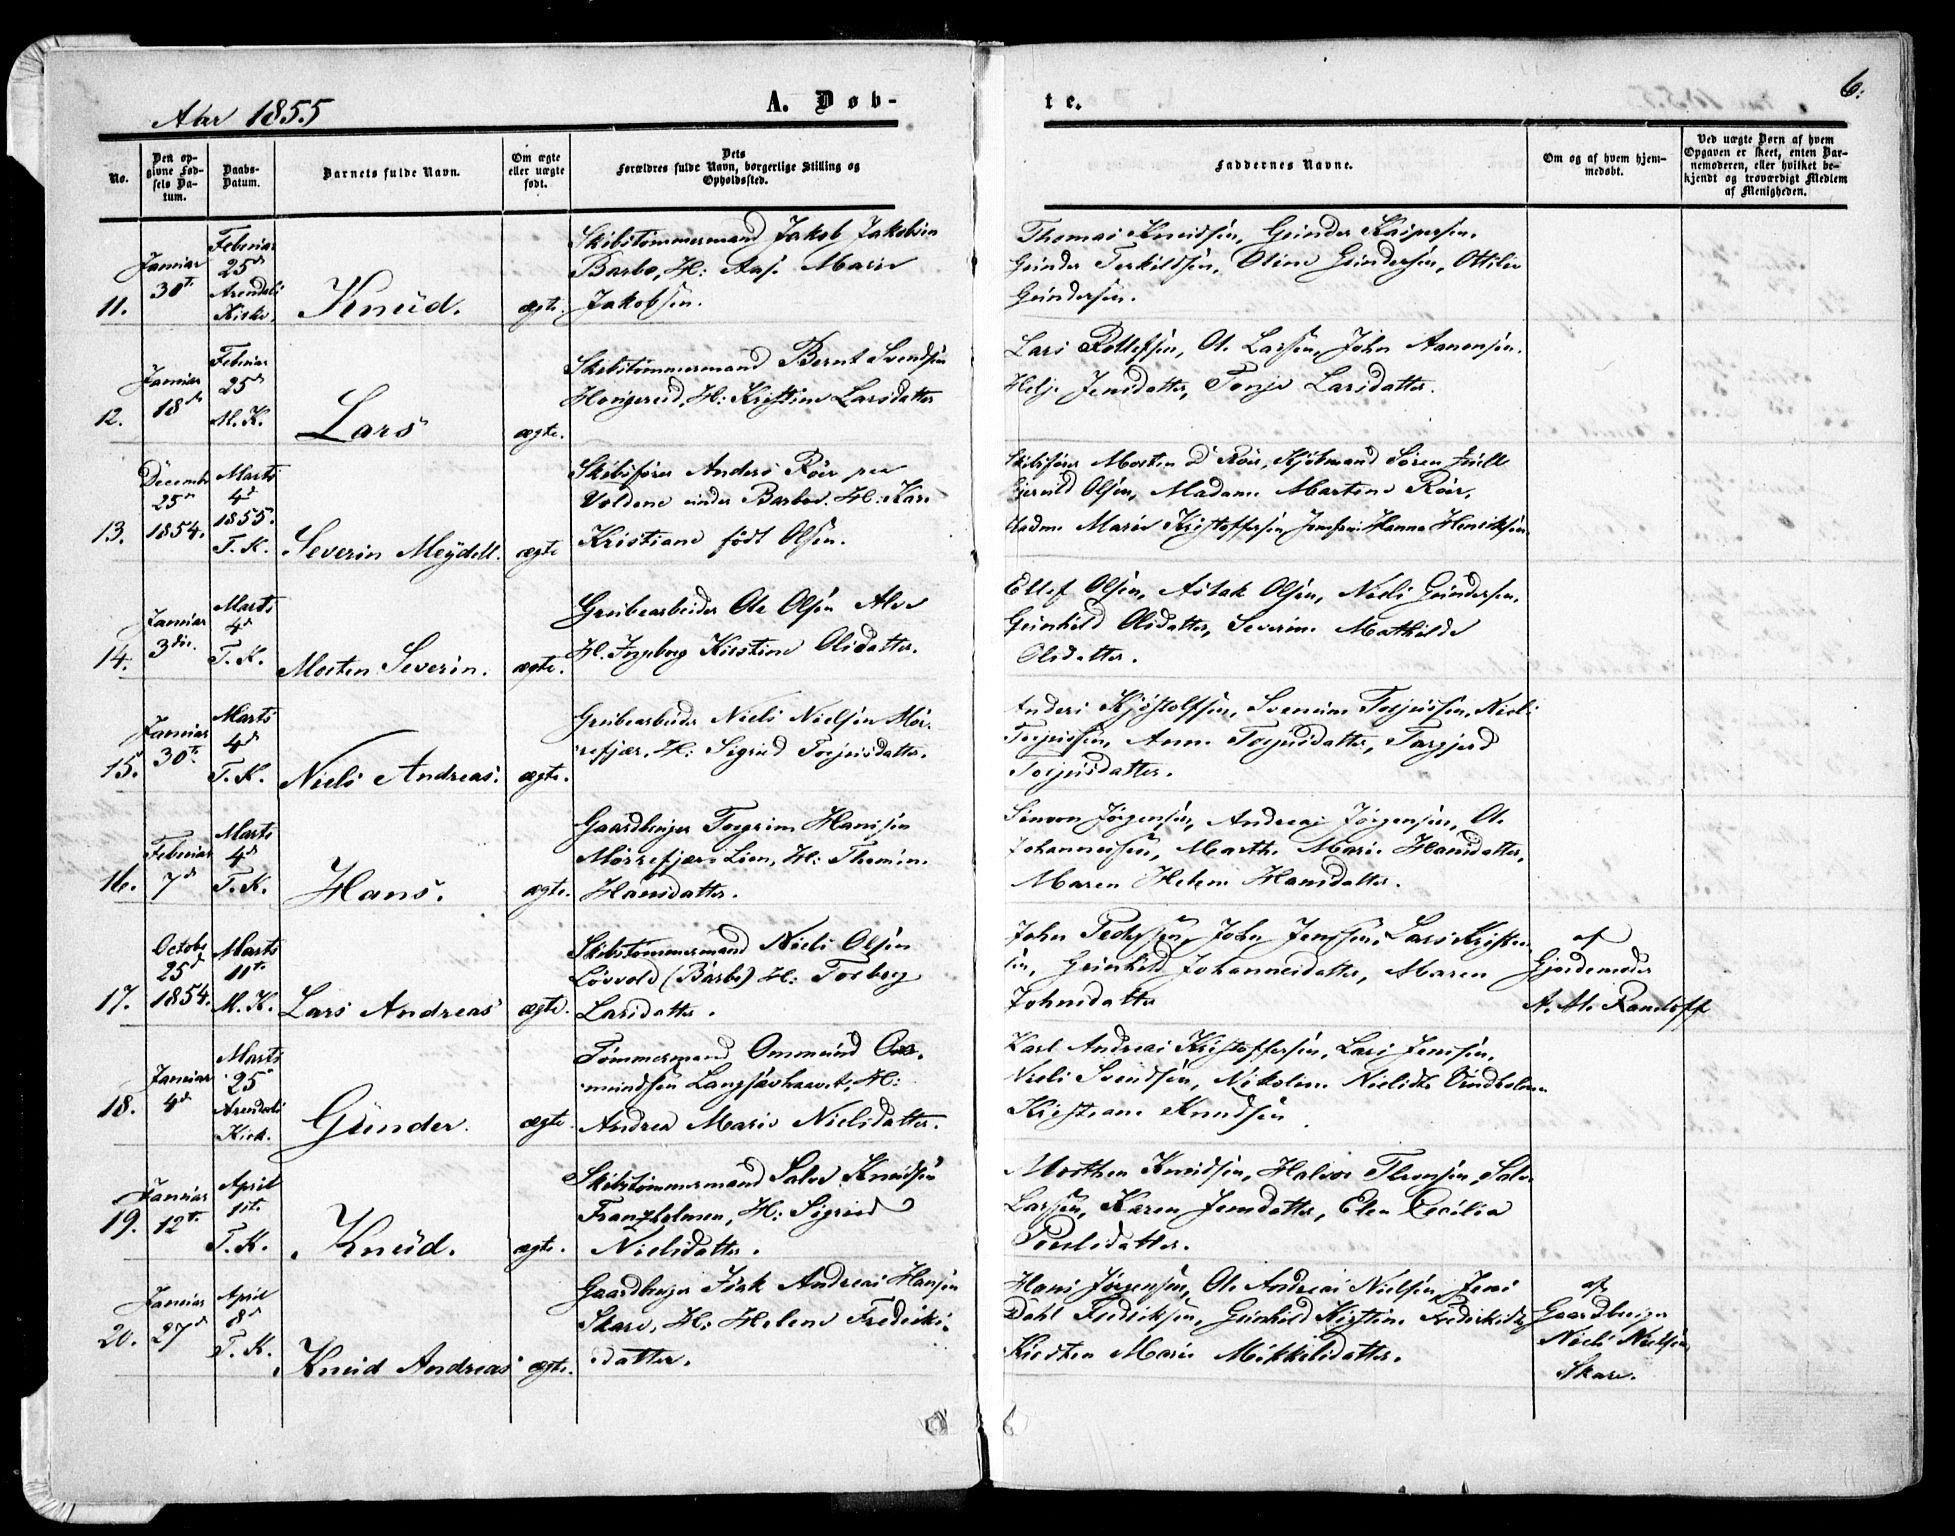 Aar 1855
A. Døb-
te.
6.
No.
Den op-
givne Fød-
sels Da-
tum.
Daabs-
Datum.
Barnets fulde Navn.
Om ægte
eller uægte
født.
Dets
Forældres fulde Navn, borgerlige Stilling og
Opholdssted.
Faddernes Navne.
Om og af hvem hjem-
medøbt.
Ved uægte Børn af hvem
Opgaven er skeet, enten Bar-
nemoderen, eller hvilket be-
kjendt og troværdigt Medlem
af Menigheden.
11.
Januar
30te
Februar
25de
Arendals
Kirke.
Knud.
ægte.
Skibstømmermand Jakob Jakobsen
Barbo, H: Aase Marie
Jakobsen.
Thomas Knudsen, Gunder Kaspersen,
Gunder Terkildsen, Oline Gundersen, Otilie
Gundersen.
12.
Januar
18de
Februar
25de
M. K.
Lars
ægte.
Skibstømmermand Bernt Svendsen
Hongereid, H: Kristine Larsdatter
Lars Rollefsen, Ole Larsen, John Aanensen,
Helje Jensdatter, Tonje Larsdatter.
13.
Decembr
25de
1854.
Marts
4de
1855.
T. K.
Severin Meydell.
ægte
Skibsfører Anders Röer paa
Voldene under Barboe. H: Karen
Kristiane født Olsen.
Skibsfører Morten D Röer, Kjøbmand Søren
Olsen, Madam Martine Röer,
Madme Marie Kristoffersen, Jomfru Hanne Henriksen.
14.
Januar
3die
Marts
4de
T. K.
Morten Severin.
ægte.
Grubearbeider Ole Olsen Alve
H. Ingeborg Kirstine Olsdatter.
Ellef Olsen, Aslak Olsen, Niels Gundersen,
Gunhild Olsdatter, Severine Mathilde
Olsdatter.
15.
Januar
30te
Marts
4de
T. K.
Niels Andreas.
ægte.
Grubearbeider Niels Nielsen Mør-
refjær, H: Sigrid Torjusdatter.
Anders Kjøstolfsen, Torjussen, Niels
Torjussen, Anne Torjusdatter, Torgjerd
Torjusdatter.
16.
Februar
7de
Marts
4de
T. K.
Hans.
ægte.
Gaardbruger Torgrim Hansen
Mørrefjær Lien, H: Thomine
Hansdatter.
Simon Jørgensen, Andreas Jørgensen, Ole
Johannessen, Marthe Marie Hansdatter,
Maren Helene Hansdatter.
17.
Octobr
25de
1854.
Marts
11te
M. K.
Lars Andreas
ægte.
Skibstømmermand Niels Olsen
Løvvold (Barbo) H: Torborg
Larsdatter.
John Pedersen, John Jenssen, Lars Kristen-
sen, Gunhild Johannesdatter, Maren
Johnsdatter
af
Gjordemoder
A. M. Randoff
18.
Januar
4de
Marts
25de
Arendals
Kirk.
Gunder.
ægte.
Tømmermand Ommund Om-
mundsen Langsævhavet, H:
Andrea Marie Nielsdatter.
Karl Andreas Kristoffersen, Lars Jensen,
Niels Svendsen, Nikoline Nielsdtr Vindholmen
Kristiane Knudsen
19.
Januar
12te
April
1ste
T. K.
Knud.
ægte.
Skibstømmermand Salve Knudsen
Franzholmen, H: Sigrid
Nielsdatter.
Morthen Knudsen, Halvor Thronsen, Salve
Larsen, Karen Jensdatter, Elen Cecilia
Poulsdatter.
20.
Januar
27de
April
8de
T. K.
Knud Andreas
ægte.
Gaardbruger Isak Andreas Hansen
Skare, H: Helene Frederiks-
datter.
Hans Jørgensen, Ole Andreas Nielsen, Jens
Dahl Fredriksen, Gunhild Kirstine Frederiksdtr
Kirsten Marie Mikkelsdatter.
af
Gaardbruger
Niels Nielsen
Skare.